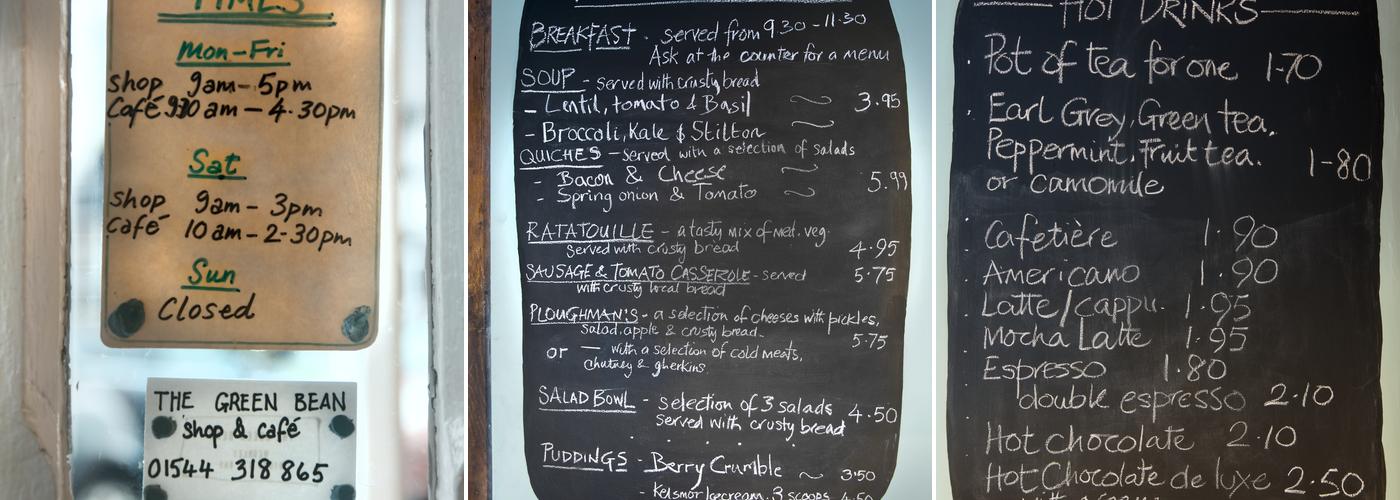 TIMES
Mon-Fri
Shop 9am-5pm
Café 9.30 am - 4.30pm
Sat
Shop 9am - 3pm
Café 10 am - 2-30pm
Sun
Closed
THE GREEN BEAN
Shop & café
01544 318 865
BREAKFAST - served from 9.30 - 11.30
Ask at the counter for a menu
SOUP - served with crusty bread
- Lentil, tomato & Basil ~ 3.95
- Broccoli, Kale & Stilton ~
QUICHES - served with a selection of salads
- Bacon & Cheese ~ 5.99
- Spring onion & Tomato ~
RATATOUILLE - a tasty mix of med. veg.
Served with crusty bread 4.95
SAUSAGE & TOMATO CASSEROLE - served 5.75
with crusty local bread
PLOUGHMAN'S - a selection of cheeses with pickles,
Salad, apple & crusty bread. 5.75
or - with a selection of cold meats,
Chutney & gherkins
SALAD BOWL - selection of 3 salads 4.50
served with crusty bread
PUDDINGS - Berry Crumble ~ 3.50
- Kelsmor Icecream. 3 scoops 4.50
HOT DRINKS
· Pot of tea for one 1-70
· Earl Grey, Green tea.
Peppermint, Fruit tea. 1-80
or camomile
· Cafetière 1.90
· Americano 1.90
· Latte/cappu. 1.95
· Mocha Latte 1.95
· Espresso 1.80
double espresso 2.10
· Hot chocolate 2.10
· Hot Chocolate de luxe 2.50